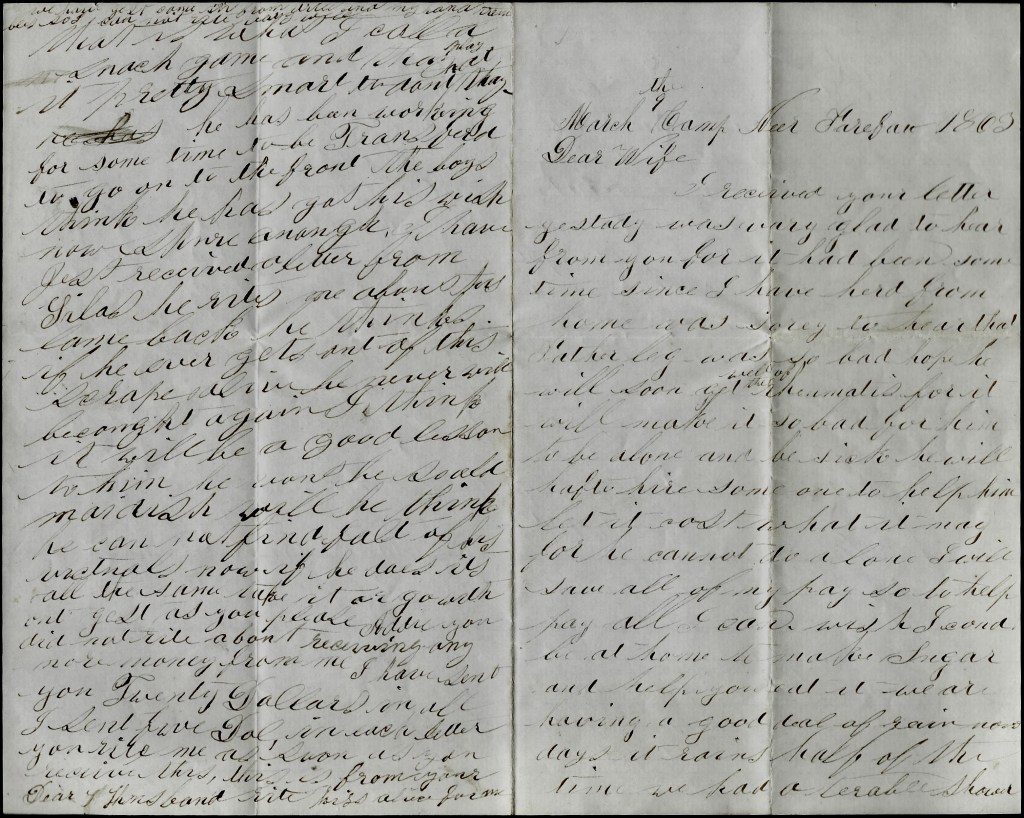 March the 9 Camp Neer Fairefax 1863
Dear Wife
I received your letter
yestady was vary glad to hear
from you for it had been some
time since I have herd from
home was sorey to hear that
Father leg was so bad hope he
will soon get well of the rheumatis for it
will make it so bad for him
to be alone and be sick he will
haf to hire some one to help him
let it cost what it may
for he cannot do alone I will
save all of my pay so to help
pay all I can wish I could
be at home to make Sugar
and help you eat it we are
having a good deal of rain now
days it rains half of the
time we had a terable shower
we have jest come in from drill and my hand
so I can not rite vary
What is what I call a
Snach game and they play
it pretty Smart to dont they
he has ban working
for some time to be Transferd
to go on to the front the boys
think he has got his wish
now Shure enough. I have
Jest received a letter from
Silas he rites me about his
lame back he thinks
if he ever gets out of this
Scrape alive he never will
be cought again I think
it will be a good lesson
to him he wont be so old
mardish will he think
he can not find falt of his
victuals now if he does its
all the same take it or go with
out gest as you please Addie you
did not rite about receiving any
more money from me I have sent
you Twenty Dollars in all
I sent five Dol in each letter
you rite me as soon as you
receive this, this is from your
Dear Husband rite kiss alice for me